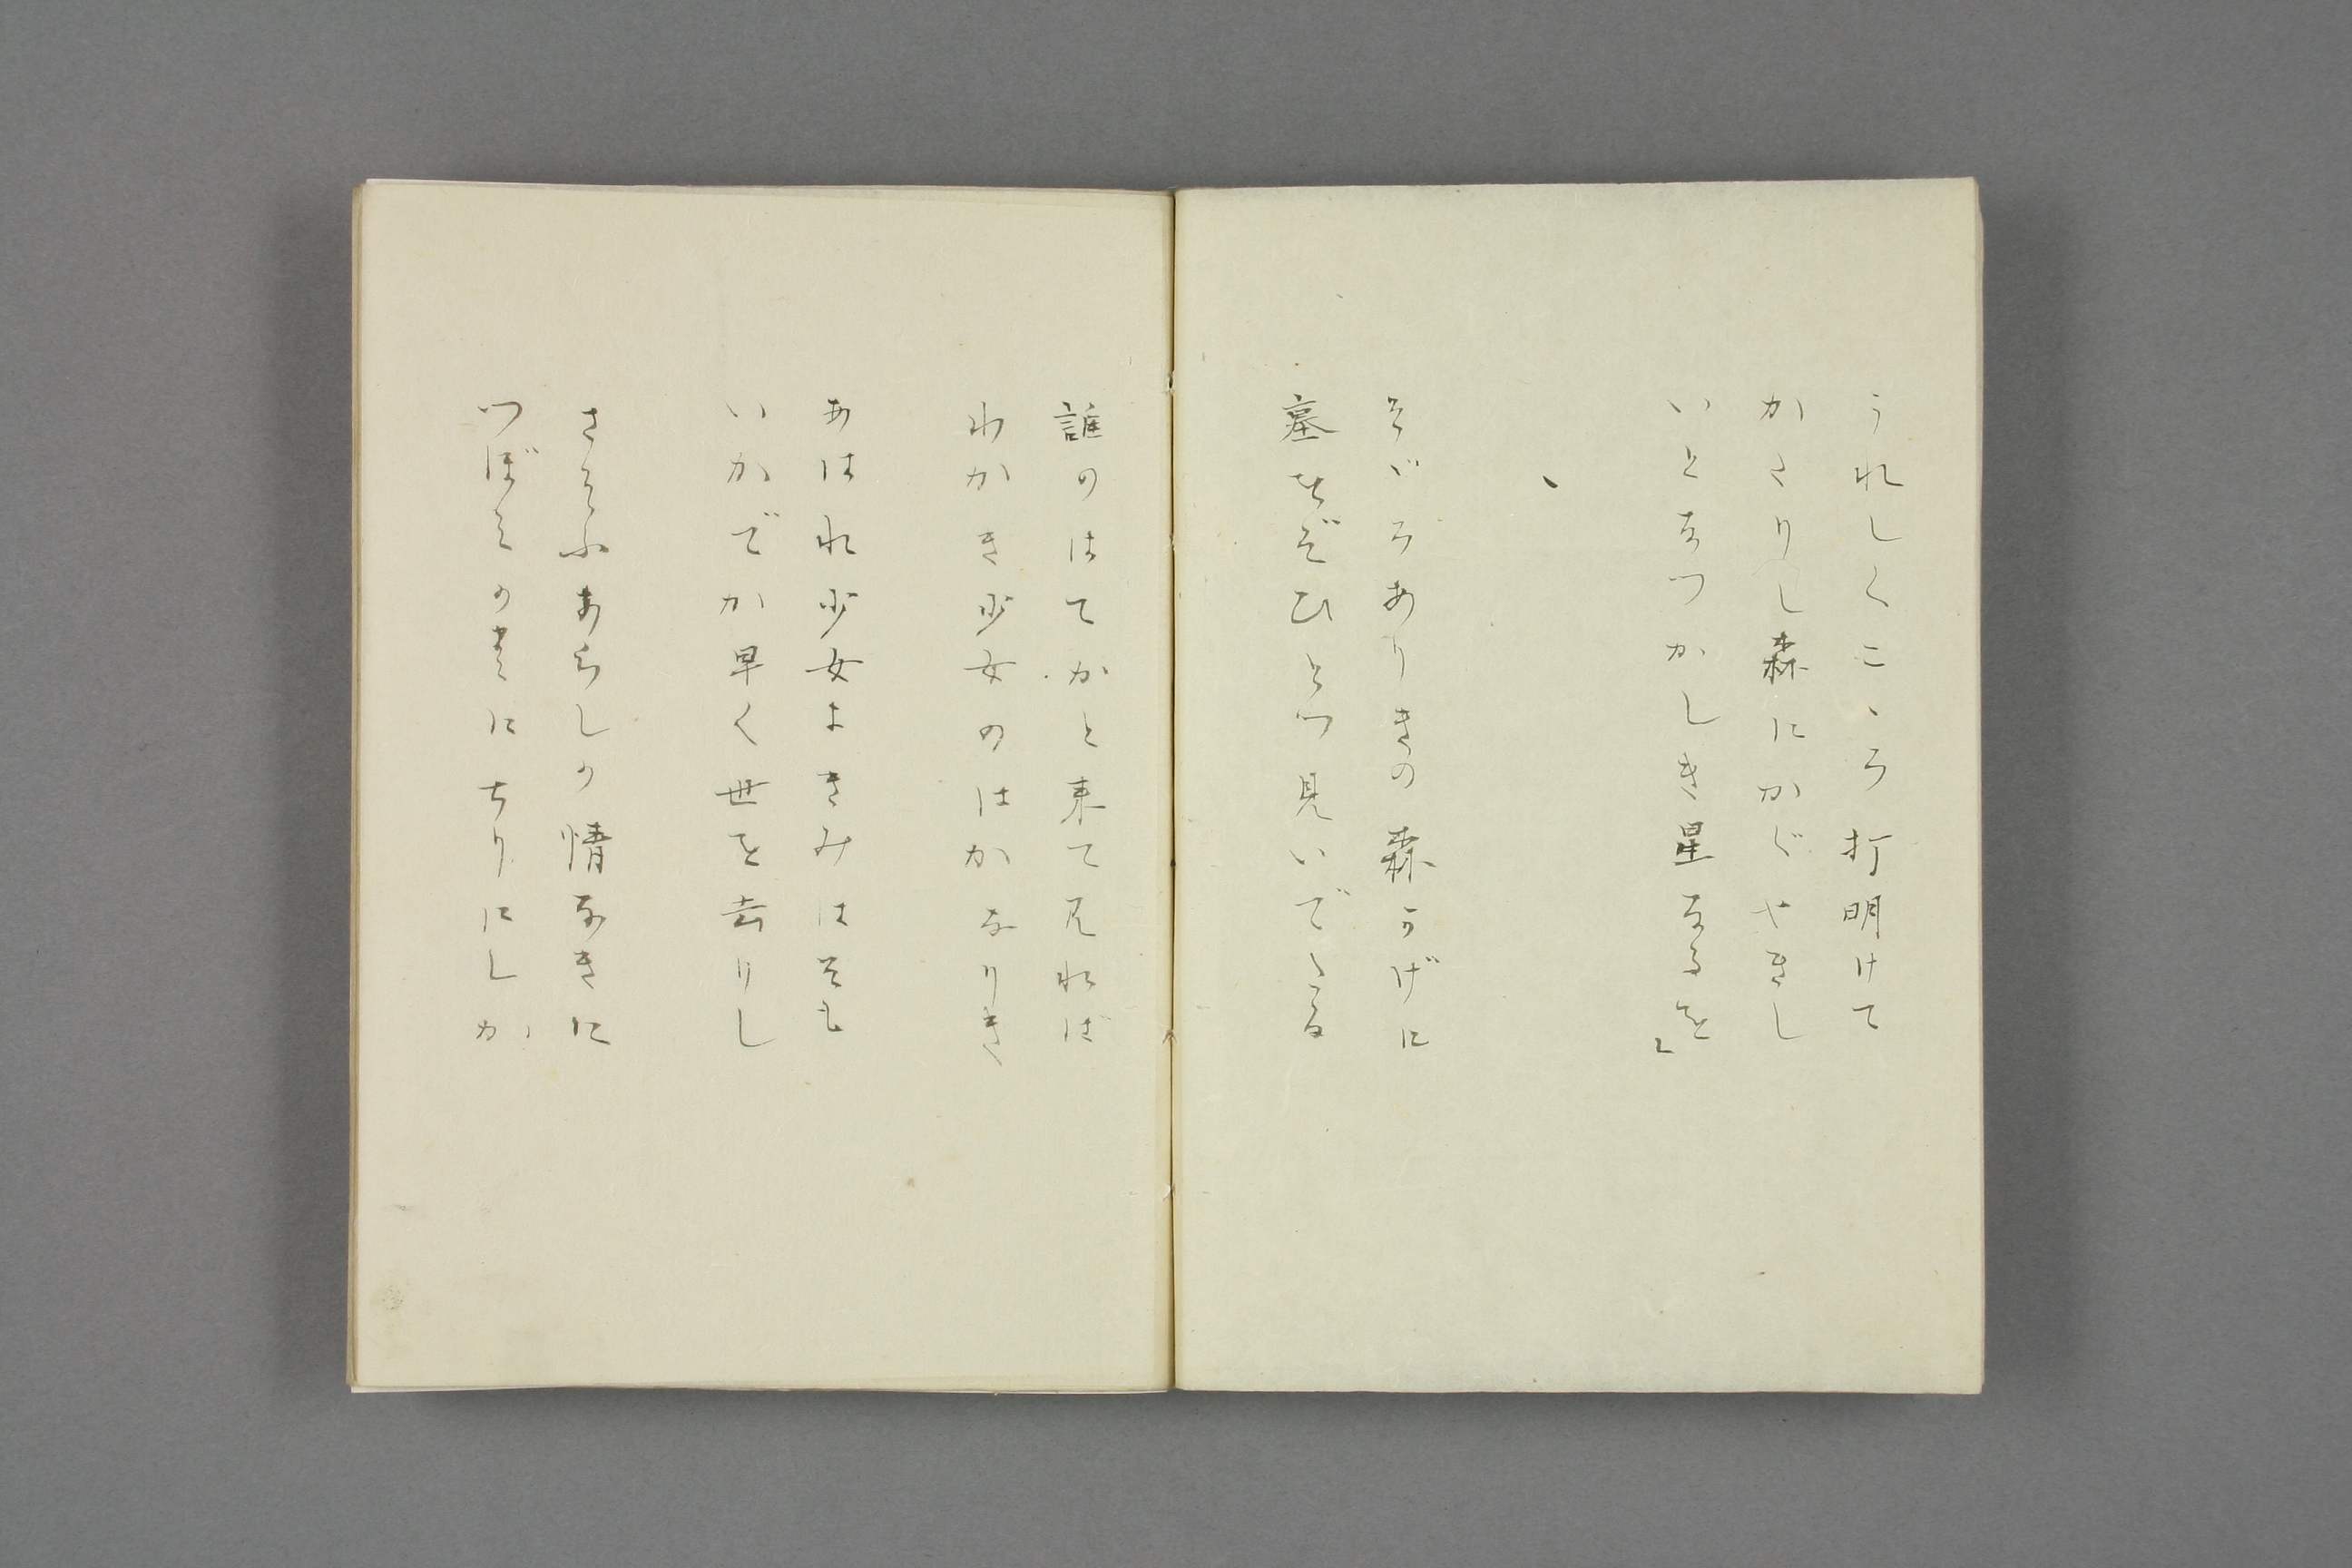 うれしくこゝろ打明けて
かたりし森にかゞやきし
いとなつかしき星なるを」
ヽ
そゞろありきの森かげに
墓をぞひとつ見いでたる
誰のはてかと来て見れば
わかき少女のはかなりき
あはれ少女よきみはそも
いかでか早く世を去りし
さそふあらしの情なきに
つぼみのまゝにちりにしか